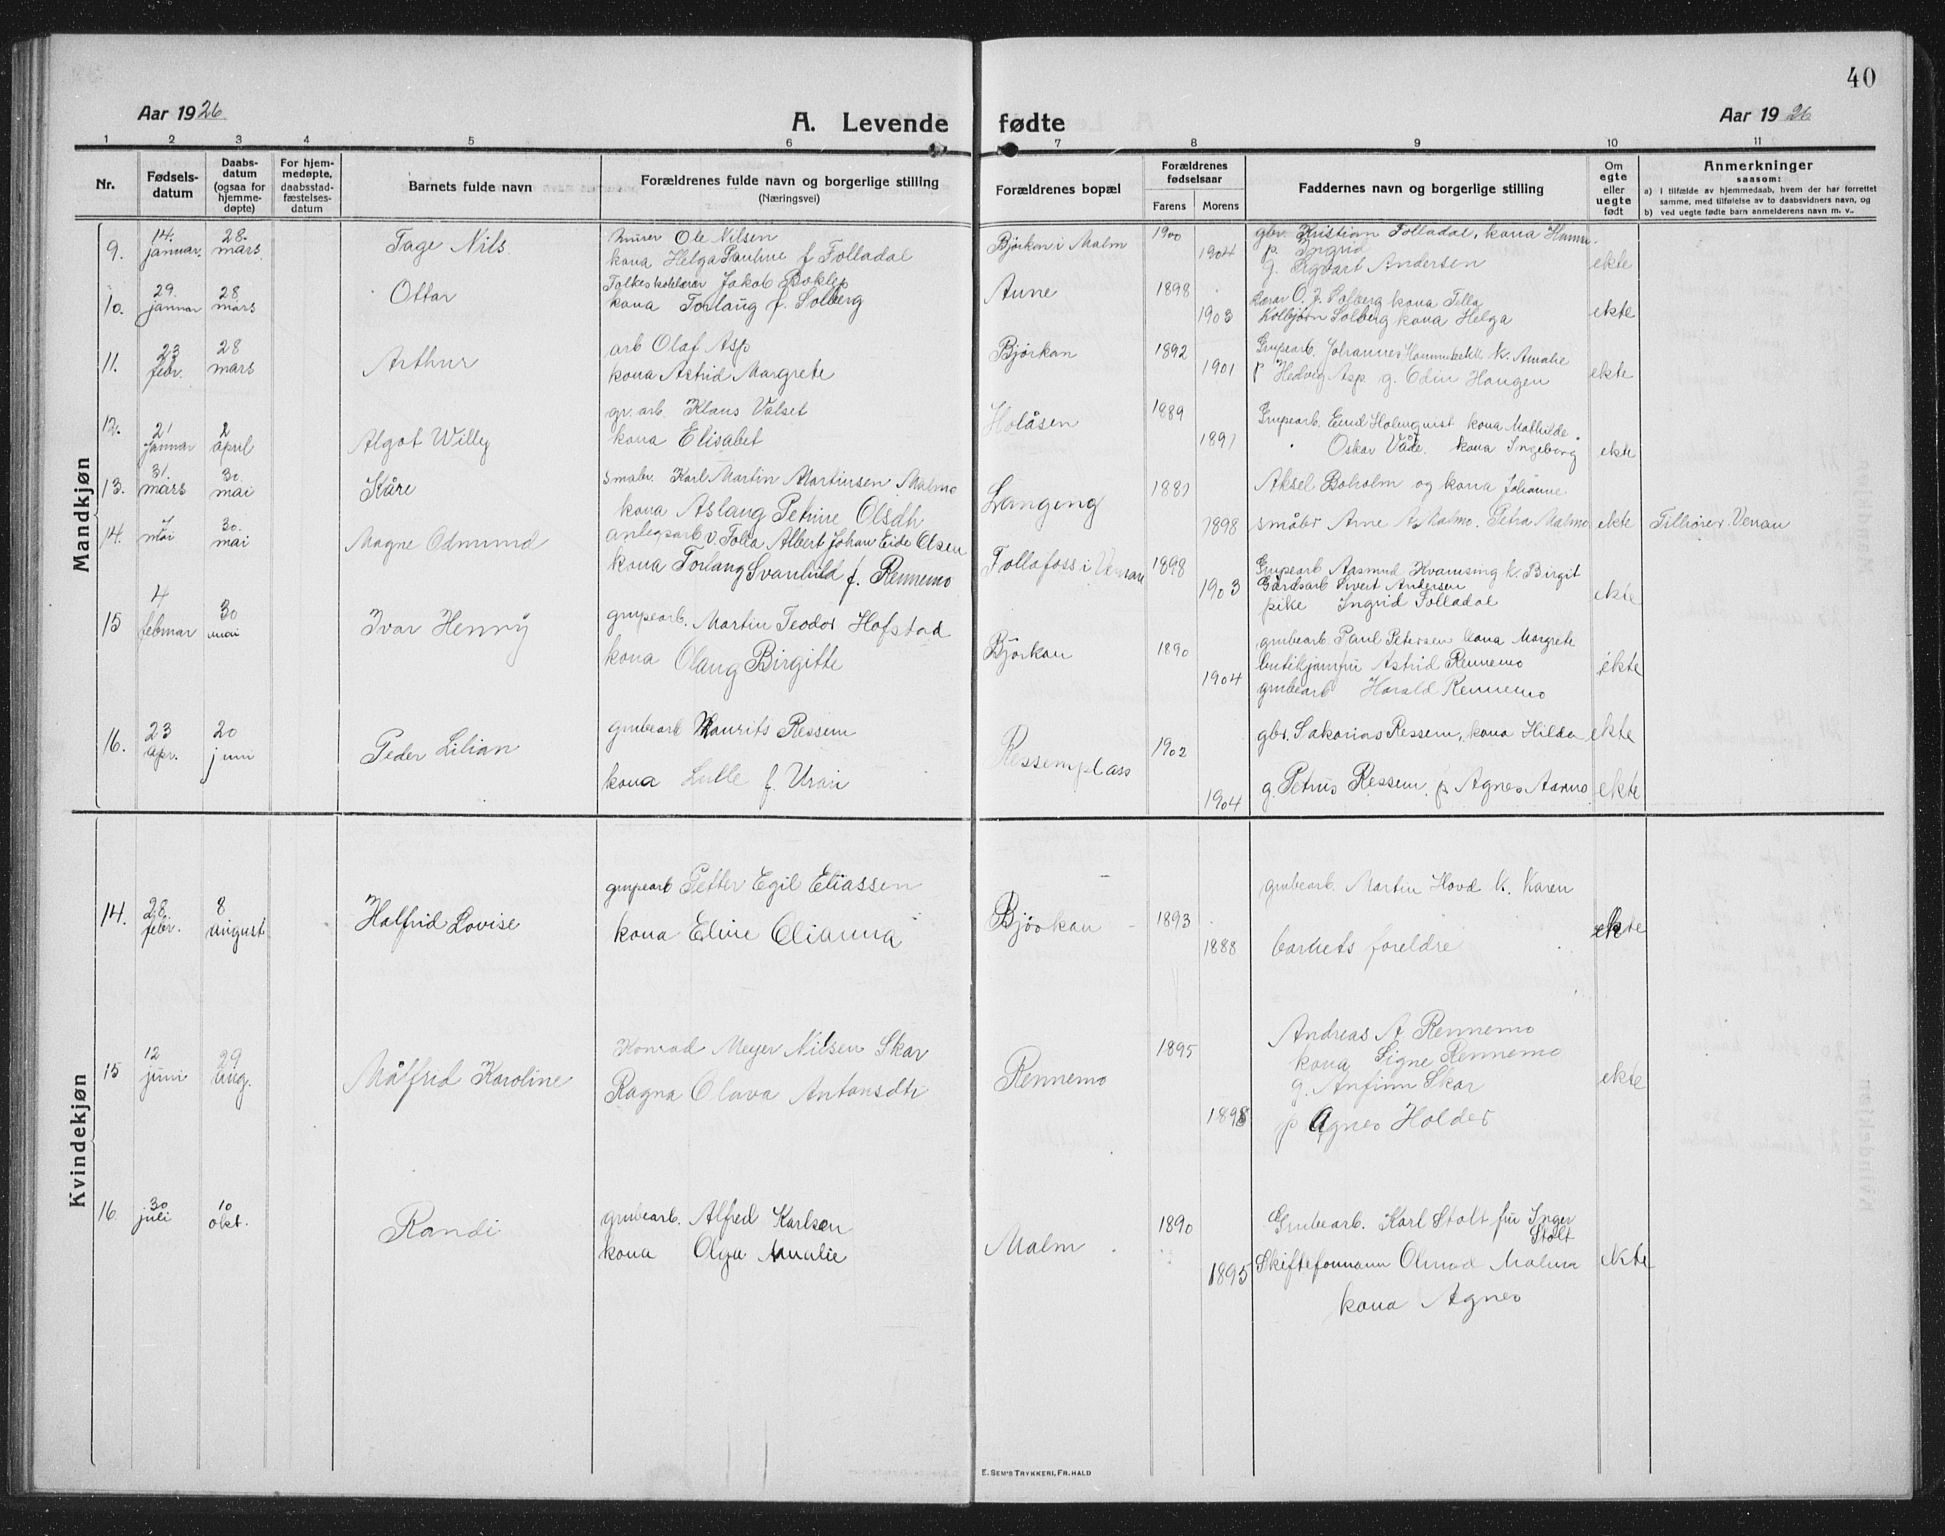 40
Aar 1926
A. Levende fødte
Aar 1926
1 2 3 4 5 6 7 8 9 10 11
Nr.
Fødsels-
datum
Daabs-
datum
(ogsaa for
hjemme-
døpte)
For hjem-
medøpte,
daabsstad-
fæstelses-
datum
Barnets fulde navn
Forældrenes fulde navn og borgerlige stilling
(Næringsvei)
Forældrenes bopæl
Forældrenes
fødselsaar
Farens Morens
Faddernes navn og borgerlige stilling
Om
egte
eller
uegte
født
Anmerkninger
saasom:
a) I tilfælde av hjemmedaab, hvem der har forrettet
samme, med tilføielse av to daabsvidners navn, og
b) ved uegte fødte barn anmelderens navn m. v..
Mandkjøn
9. 14. januar 28. mars Tage Nils
murer Ole Nilsen
kona Helga Pauline f. Folladal
Bjørkan i Malm 1900 1904
gbr. Kristian Folladal, kona Hanna.
p. Ingrid
g. Sigvart Andersen
ekte
10. 29. januar 28 mars Ottar
Folkeskolelærer Jakob Boklep
kona Torlaug f. Solberg
Aune 1898 1903
Lærar O. J. Solberg kona Tilla
Kolbjørn Solberg kona Helga
ekte
11. 23 febr. 28 mars Arthur
arb Olaf Asp
kona Astrid Margrete
Bjørkan 1892 1901
Grupearb. Johannes k. Amalie
p Hedvig Asp g. Odin Haugen
ekte
12. 21 januar 2 april Algot Willy
gr. arb. Klaus Valset
kona Elisabet
Holåsen 1889 1891
Grupearb. Holmquist kona Mathilde
" Oskar Våde. kona Ingeborg
ekte
13. 31. mars 30 mai Kåre
smabr. Karl Martin Martinsen Malmo
kona Aslaug Petrine Olsdh
Langeng 1881 1898
Aksel Boholm og kona Johanne
småbr Arne A Malmo. Petra Malmo
ekte Tilhører Verran
14. 7 mai 30. mai Magne Odmund
anlegsarb v. Folla Albert Johan Eide Olsen
kona Torlaug Svanhild f. Rennemo
Follafoss i Verran 1898 1903
Grupearb Aasmund Kvamsing k. Birgit
Gårdsarb Sivert Andersen
pike Ingrid Folladal
ekte
15 4 februar 30 mai Ivar Henry
grupearb. Martin Teodor Hofstad
kona Olaug Birgitte
Bjørkan 1890 1904
grubearb Paul Petersen kona Margrete
butikjomfru Astrid Rennemo
grubearb Harald Rennemo
ekte
16. 23 apr. 20 juni Peder Lilian
grubearb Laurits Ressem
kona Lulle f. Uran
Ressemplass 1902 1904
gbr. Sakarias Ressem, kona Hilda ekte
g. Petrus Ressem, p Agnes Aarmo ekte
Kvindekjøn
14. 28. febr. 8 august Halfrid Lovise
grupearb Petter Egil Eliassen
kona Eline Olianna
Bjørkan 1893 1888
grubearb. Martin Hovd k. Karen
barnets foreldre
ekte
15 12 juni 29 aug. Målfrid Karoline
Konrad Meyer Nilsen Skar
Ragna Olava Antonsdtr
Rennemo 1895 1898
Andreas A. Rennemo
kona Signe Rennemo
g. Anfinn Skar
p Agnes Holder
ekte
16 30 juli 10 okt. Randi
grubearb. Alfred Karlsen
kona Olga Amalie
Malm 1890 1895
Grubearb. Karl Stolt fru Inger
Stolt
Skifteformann Malmo
kona Agnes
ekte
E. SEM'S TRYKKERI, FR.HALD